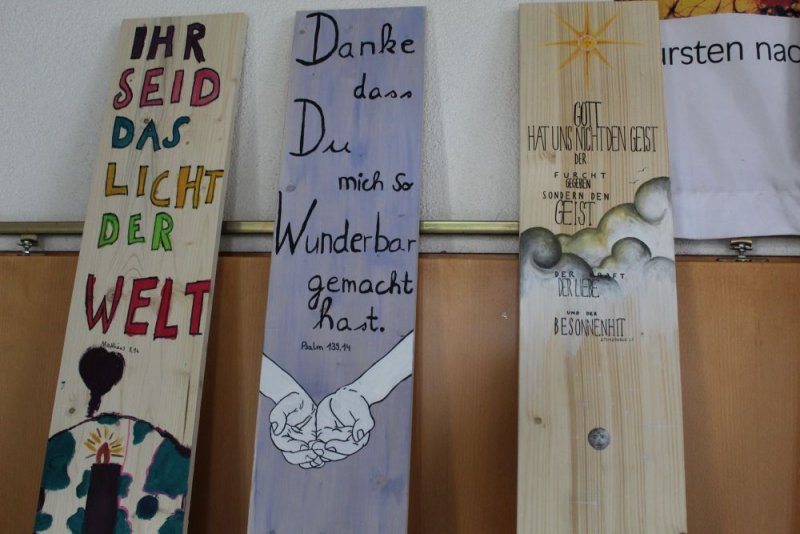 IHR
SEID
DAS
LICHT
DER
WELT
Matthäus 5,14
Danke
dass
Du
mich so
Wunderbar
gemacht
hast.
Psalm 139,14
GOTT
HAT UNS NICHT DEN GEIST
DER
FURCHT
GEGEBEN
SONDERN DEN
GEIST
DER KRAFT
DER LIEBE
UND DER
BESONNENHIT
ürsten nac